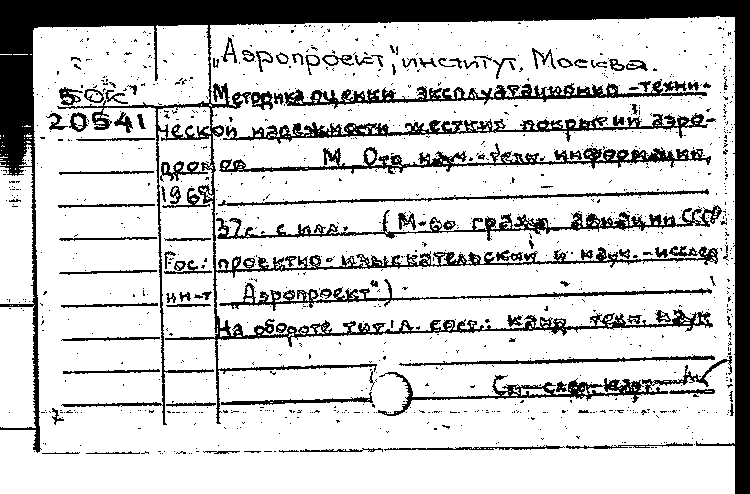 „Аэропроект", институт, Москва.
БОК
20541
Методика оценки эксплуатационно-техни-
ческой надежности жестких покрытий аэро-
дромов М., Отд. науч.-техн. информации,
1968
37с. с илл. (М-во гражд. авиации СССР.
Гос. проектно-изыскательский и науч.-исслед.
ин-т „Аэропроект")
На обороте тит. л. сост.: канд. техн. наук
См. след. карт.